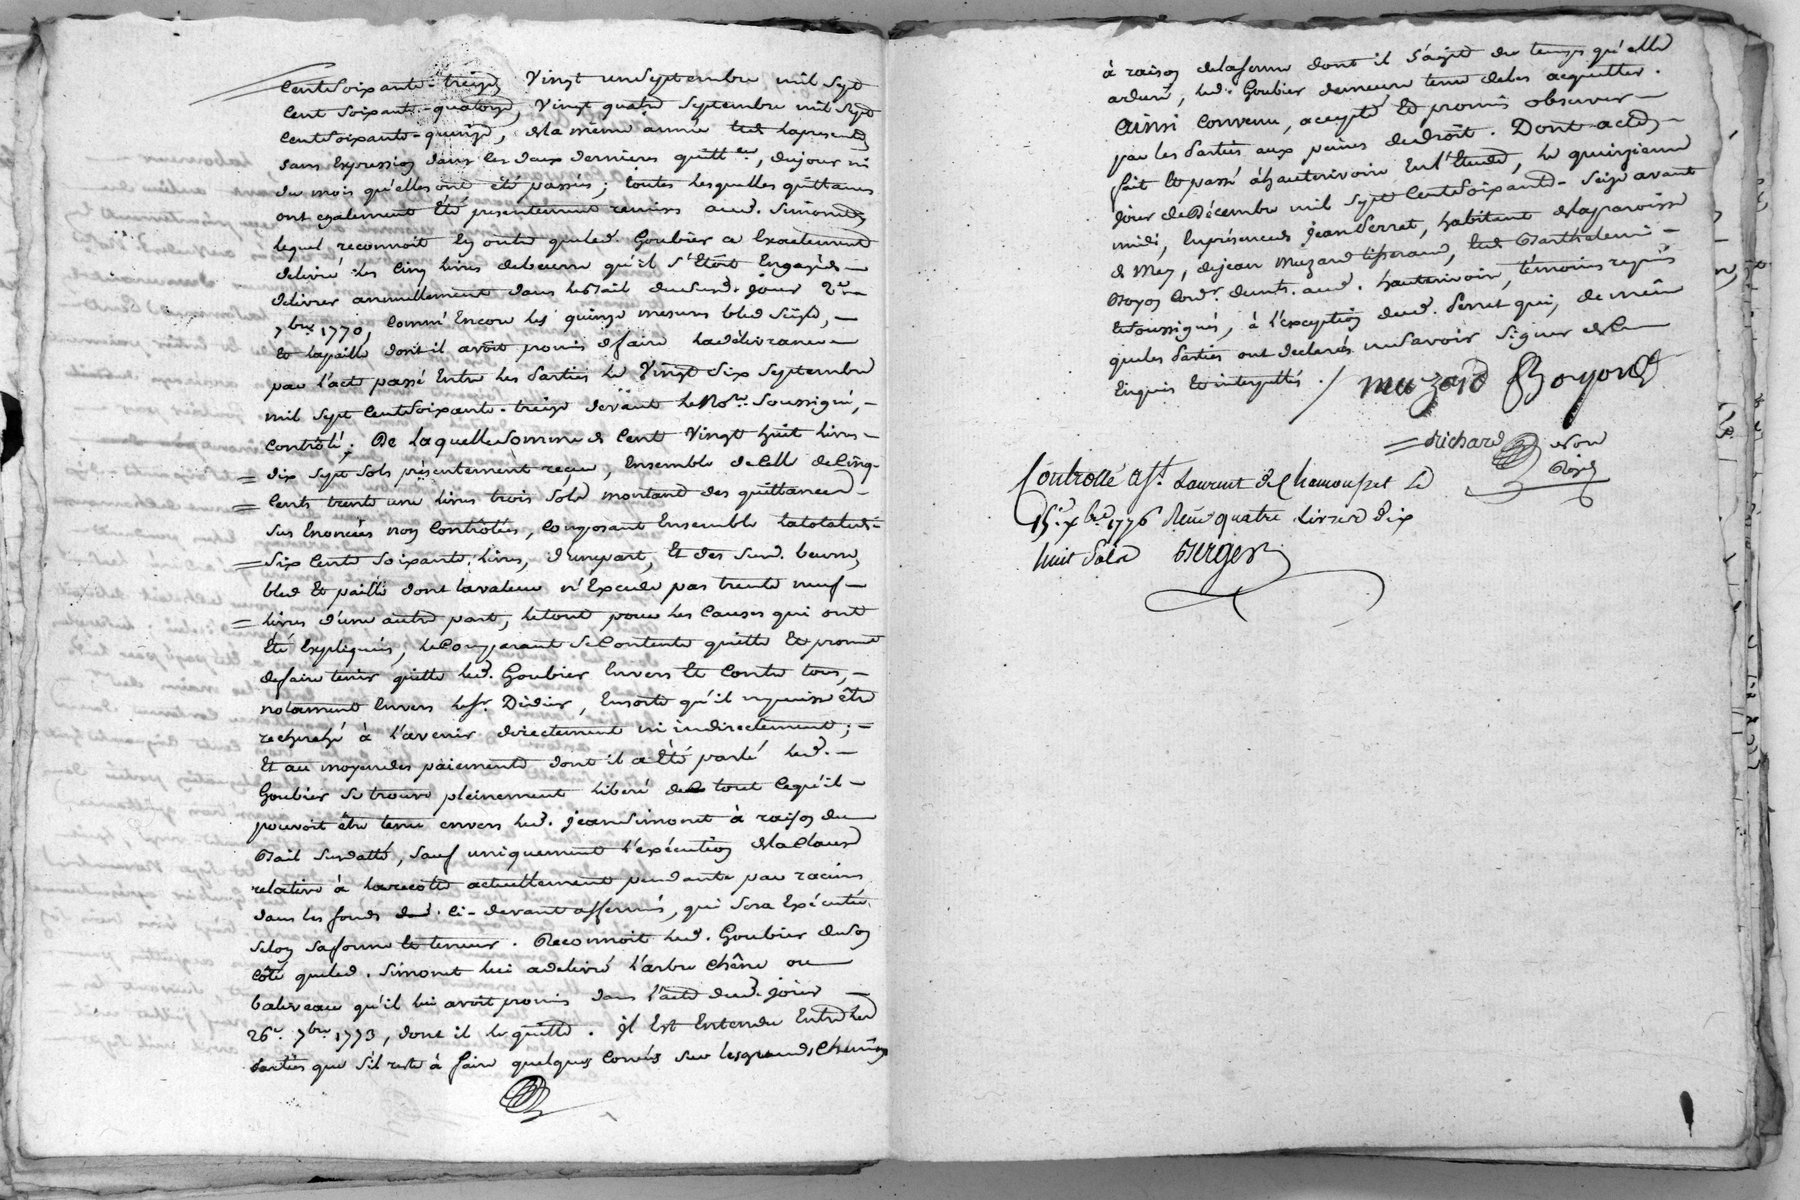 Cent soixante-treize, Vingt un septembre mil sept
Cent soixante-quatorze, Vingt quatre septembre mil sept
Cent soixante-quinze, de la même année
sans Expression dans les deux dernieres quitt.ces, du jour ni
du mois qu'elles ont été passées; toutes lesquelles quittances
ont egalement Eté presentement remises aud. Simonet,
lequel reconnoit En outre que led. Goubier a Exactement
delivré les Cinq livres de beurre qu'il s'Etoit Engagé de
delivrer annuellement dans le Bail du susd. jour
7bre 1770, Comme Encore les quinze mesures bled seigle,
Et la paille dont il avoit promis de faire la délivrance
par l'acte passé Entre les Parties le Vingt Six Septembre
mil sept Cent soixante-treize devant le No.re soussigné,
Contrôlé. De laquelle somme de Cent Vingt huit livres
dix sept sols présentement reçue, Ensemble de Celle de Cinq
Cents trente une livres trois sols montant des quittances
sus Enoncées non Contrôlées, Composant Ensemble la totale de
Six Cents soixante livres, d'une part, Et des susd. beurre,
bled Et paille dont la valeur n'Excede pas trente neuf
livres d'une autre part, le tout pour les Causes qui ont
Eté Expliquées, le Comparant se Contente quitte Et promet
de faire tenir quitte led. Goubier Envers Et Contre tous,
notament Envers le Sr. Didier, Ensorte qu'il n'en puisse être
recherché à l'avenir directement ni indirectement;
Et au moyen des paiements dont il a Eté parlé led.
Goubier se trouve pleinement liberé de tout ce qu'il
pouvoit être tenu envers led. jean Simonet à raison du
Bail susdatté, sauf uniquement l'exécution de la Clause
relative à la recolte actuellement pendante par racines
dans les fonds Ci-devant affermés, qui sera Exécutée
selon sa forme Et teneur. Reconnoit led. Goubier de son
Côté que led. Simonet lui a delivré l'arbre Chêne ou
baliveau qu'il lui avoit promis dans l'acte dud. jour
26e. 7bre 1773, dont il le quitte. Il Est Entendu Entre les
parties que s'il reste à faire quelques Corvées sur les grands Chemins
à raison de la ferme dont il s'agit du temps qu'elle
a duré, led. Goubier demeure tenu de les acquitter.
Ainsi Convenu, accepté Et promis observer
par les Parties aux peines de droit. Dont acte
fait Et passé à hauterivoire En l'Etude, le quinzieme
jour de Décembre mil sept Cent soixante-seize avant
midi, En présence de jean Perret, habitant de la paroisse
de Mey, de jean Muzard tisserand, Barthelemi
Boyon aud. hauterivoire, témoins requis
Et soussignés, à l'exception dud. Perret qui, de même
que les Parties ont declarés ne savoir signer de Ce
Enquis Et interpellés. / muzard Boyon
Richard
Controllé a St. Laurent de Chamousset le
15e xbre 1776 Reçu quatre Livres dix
huit Sols Berger